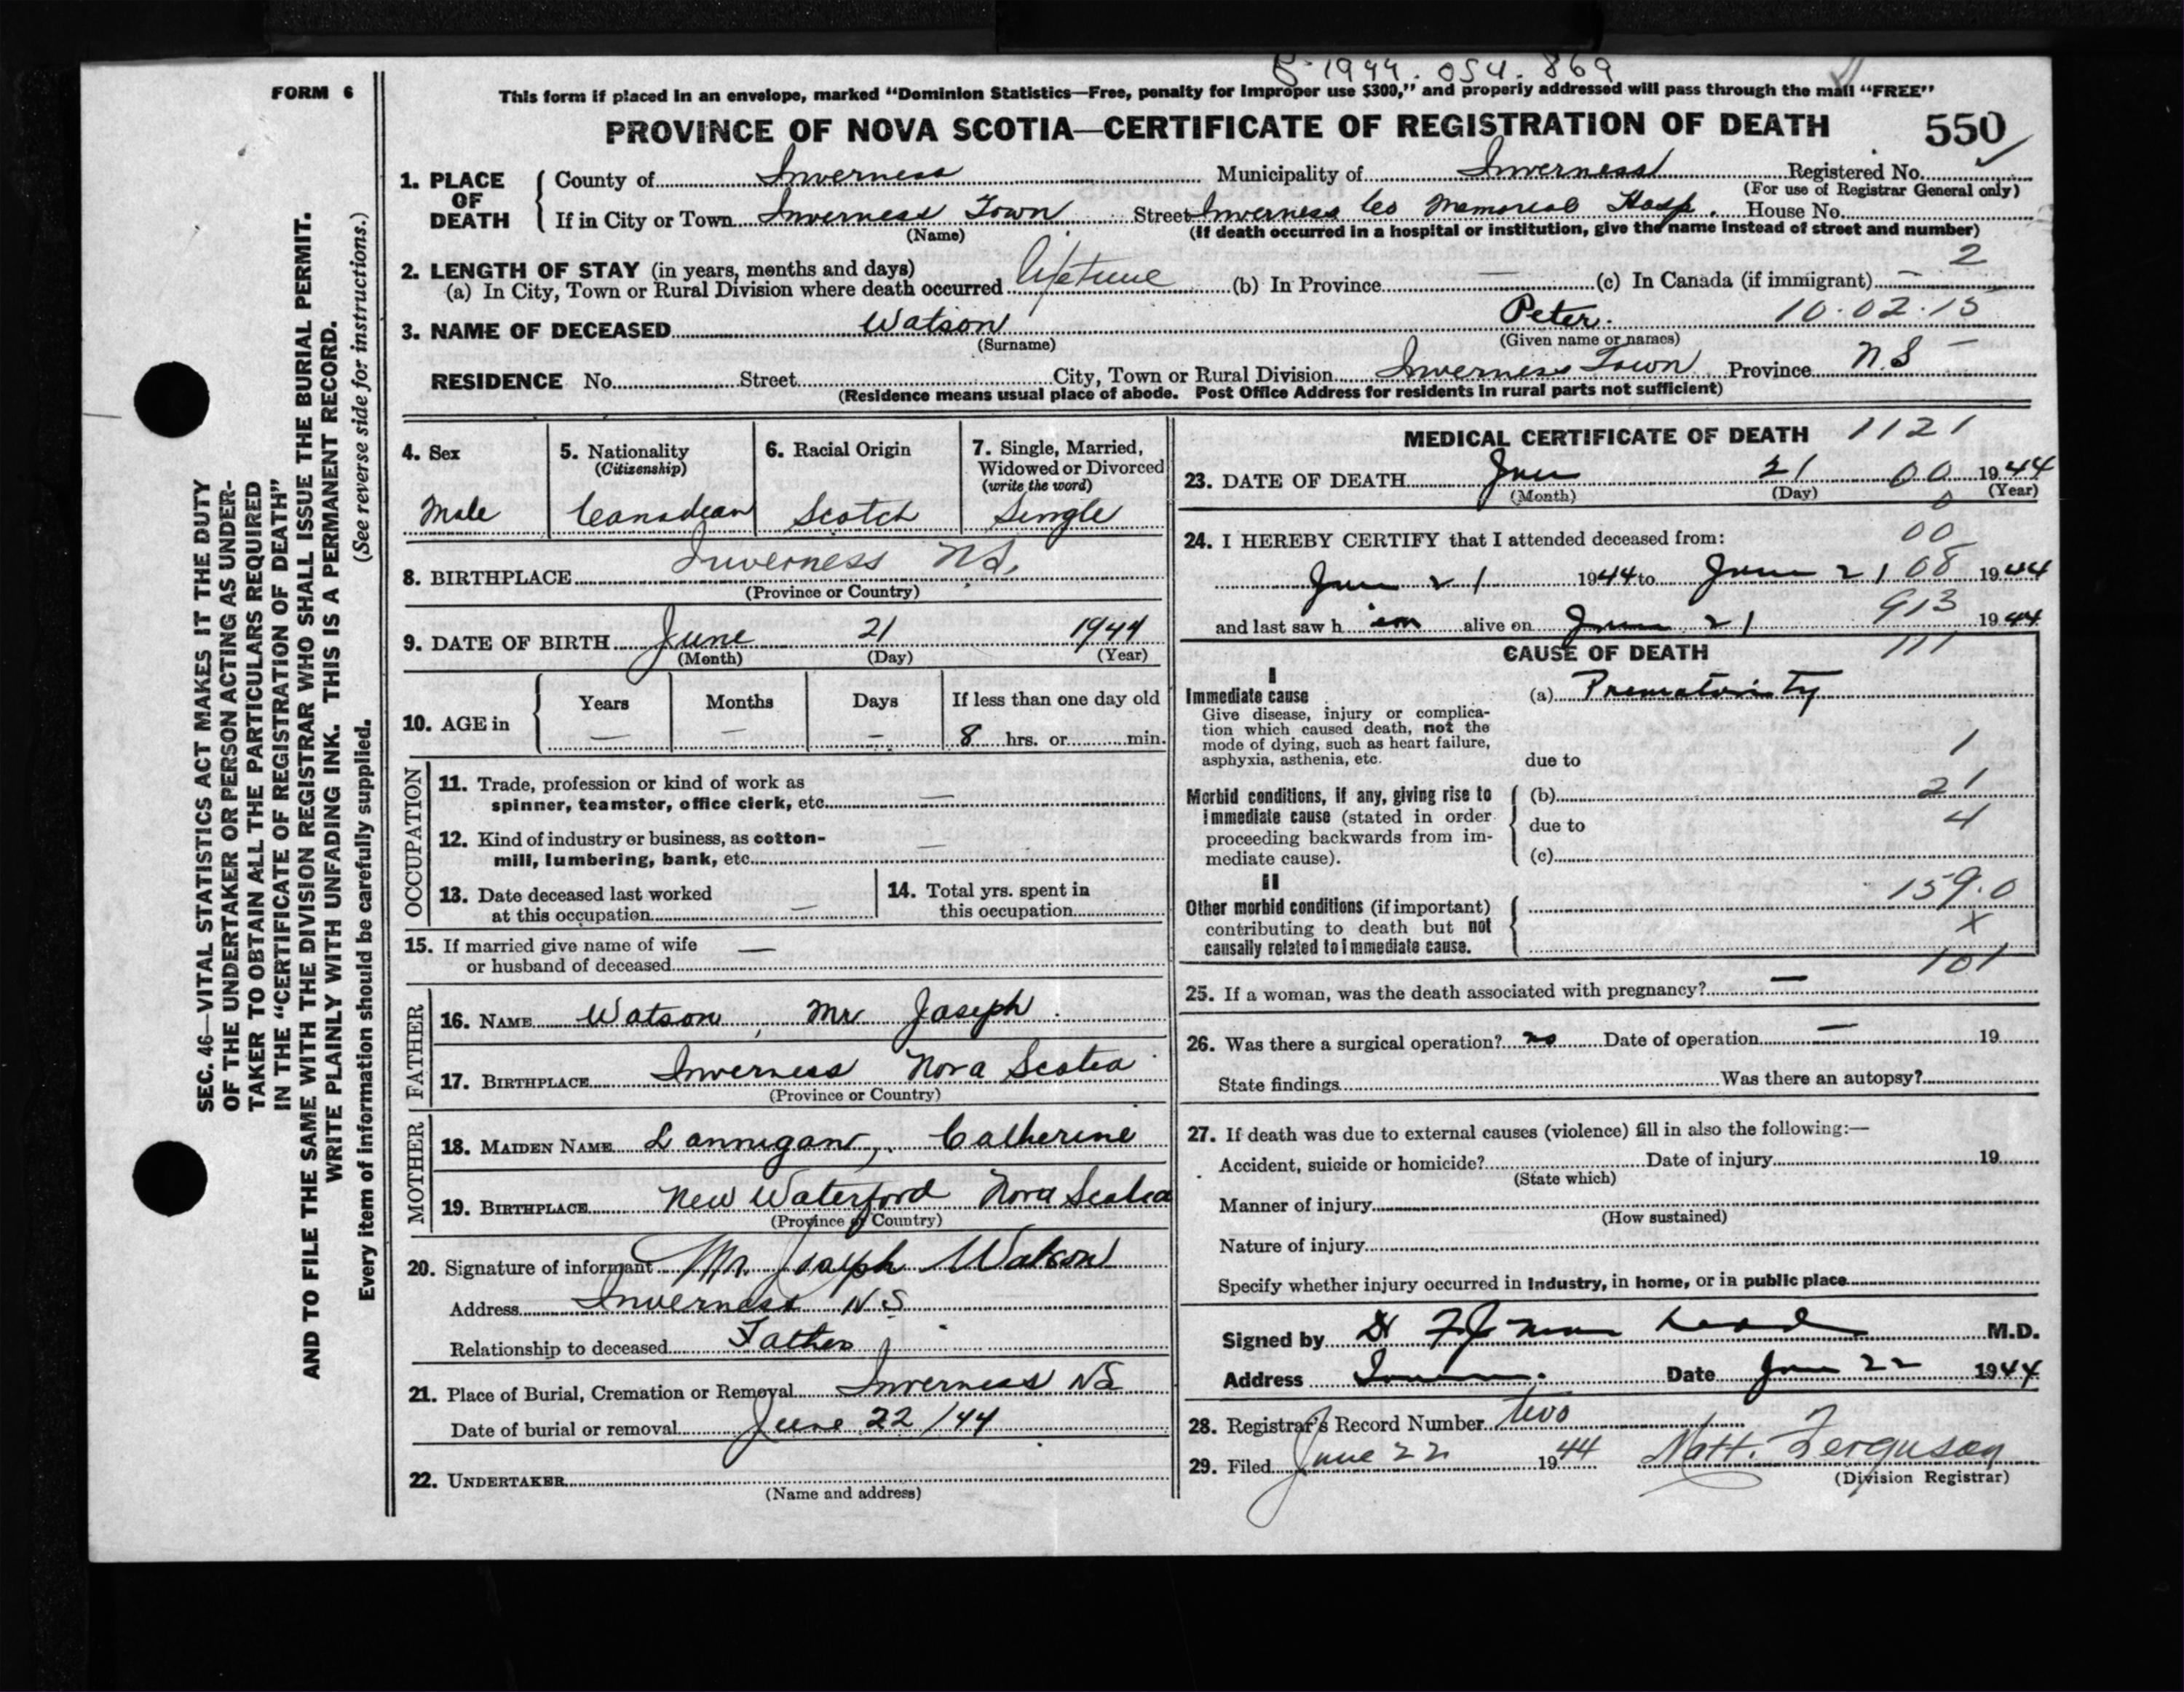 B-1944.054.869
FORM 6
This form if placed in an envelope, marked "Dominion Statistics—Free, penalty for improper use $300," and properly addressed will pass through the mail "FREE"
PROVINCE OF NOVA SCOTIA—CERTIFICATE OF REGISTRATION OF DEATH 550
SEC. 46—VITAL STATISTICS ACT MAKES IT THE DUTY
OF THE UNDERTAKER OR PERSON ACTING AS UNDER-
TAKER TO OBTAIN ALL THE PARTICULARS REQUIRED
IN THE "CERTIFICATE OF REGISTRATION OF DEATH"
AND TO FILE THE SAME WITH THE DIVISION REGISTRAR WHO SHALL ISSUE THE BURIAL PERMIT.
WRITE PLAINLY WITH UNFADING INK. THIS IS A PERMANENT RECORD.
Every item of information should be carefully supplied. (See reverse side for instructions.)
1. PLACE OF DEATH
County of Inverness Municipality of Inverness Registered No.
(For use of Registrar General only)
If in City or Town Inverness Town Street Inverness Co Memorial Hosp. House No.
(Name) (If death occurred in a hospital or institution, give the name instead of street and number)
2. LENGTH OF STAY (in years, months and days) 2
(a) In City, Town or Rural Division where death occurred lifetime (b) In Province — (c) In Canada (if immigrant) —
3. NAME OF DECEASED Watson Peter. 10.02.15
(Surname) (Given name or names)
RESIDENCE No. Street City, Town or Rural Division Inverness Town Province N.S
(Residence means usual place of abode. Post Office Address for residents in rural parts not sufficient)
4. Sex
Male
5. Nationality
(Citizenship)
Canadian
6. Racial Origin
Scotch
7. Single, Married,
Widowed or Divorced
(write the word)
Single
8. BIRTHPLACE Inverness N.S.
(Province or Country)
9. DATE OF BIRTH June 21 1944
(Month) (Day) (Year)
10. AGE in
Years Months Days If less than one day old
— — — 8 hrs. or min.
OCCUPATION
11. Trade, profession or kind of work as
spinner, teamster, office clerk, etc. —
12. Kind of industry or business, as cotton-
mill, lumbering, bank, etc. —
13. Date deceased last worked
at this occupation —
14. Total yrs. spent in
this occupation
15. If married give name of wife —
or husband of deceased
FATHER
16. NAME Watson, Mr Joseph.
17. BIRTHPLACE Inverness Nova Scotia
(Province or Country)
MOTHER
18. MAIDEN NAME Lannigan, Catherine
19. BIRTHPLACE New Waterford Nova Scotia
(Province or Country)
20. Signature of informant Mr. Joseph Watson
Address Inverness N S
Relationship to deceased Father
21. Place of Burial, Cremation or Removal Inverness NS
Date of burial or removal June 22/44
22. UNDERTAKER
(Name and address)
MEDICAL CERTIFICATE OF DEATH 1121
23. DATE OF DEATH June 21 00 1944
(Month) (Day) (Year)
0
24. I HEREBY CERTIFY that I attended deceased from: 00
June 21 1944 to June 21 08 1944
and last saw h im alive on June 21 913 1944
CAUSE OF DEATH 111
I
Immediate cause (a) Prematurity
Give disease, injury or complica-
tion which caused death, not the
mode of dying, such as heart failure,
asphyxia, asthenia, etc. due to 1
Morbid conditions, if any, giving rise to (b) 21
immediate cause (stated in order due to 4
proceeding backwards from im-
mediate cause). (c)
II 159.0
Other morbid conditions (if important)
contributing to death but not X
causally related to immediate cause.
101
25. If a woman, was the death associated with pregnancy? —
26. Was there a surgical operation? no Date of operation — 19
State findings Was there an autopsy?
27. If death was due to external causes (violence) fill in also the following:—
Accident, suicide or homicide? Date of injury 19
(State which)
Manner of injury
(How sustained)
Nature of injury
Specify whether injury occurred in industry, in home, or in public place
Signed by M.D.
Address Date June 22 1944
28. Registrar's Record Number two
29. Filed June 22 1944 Matt. Ferguson
(Division Registrar)